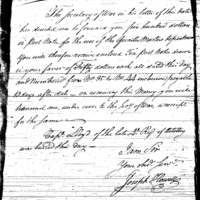 The Secretary of War in his letter of this date
has directed me to forward you five hundred dollars
in Post Notes for the use of the Quarter Masters department
you will therefore receive enclosed Ten Post Notes drawn
in your favor of Fifty dollars each all dated this Day
and Numbered from No. 35 to No. 44 inclusive, payable
days after date - on receiving this Money you will
transmit me, under cover to the Secy of War, a receipt
for the same
Capt. Lloyd of the late 4th Regt of Artillery
was buried this Day
I am Sir
Your Obed Serv
Joseph Howard